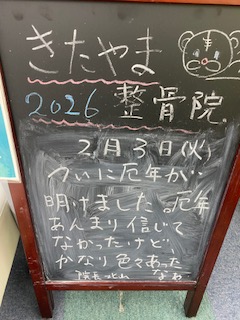 きたやま
2026 整骨院
2月3日(火)
ついに厄年が
明けました。厄年
あんまり信じて
なかったけど、
かなり色々あった
院長 北山 なわ